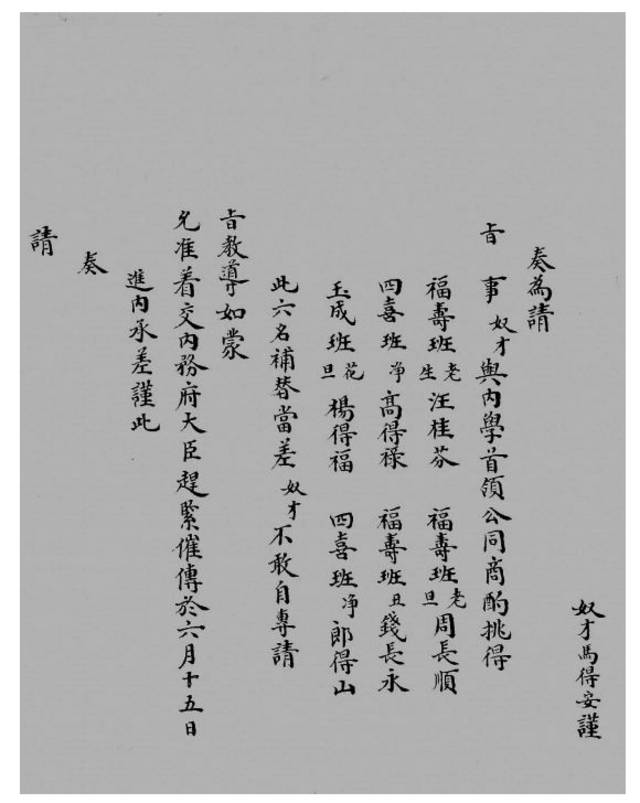 奴才馬得安謹
奏為請
旨事奴才與內學首領公同商酌挑得
福壽班老生汪桂芬 福壽班老旦周長順
四喜班净高得祿 福壽班丑錢長永
玉成班花旦楊得福 四喜班净郎得山
此六名補替當差奴才不敢自專請
旨教導如蒙
允准着交內務府大臣趕緊催傳於六月十五日
進內承差謹此
奏
請